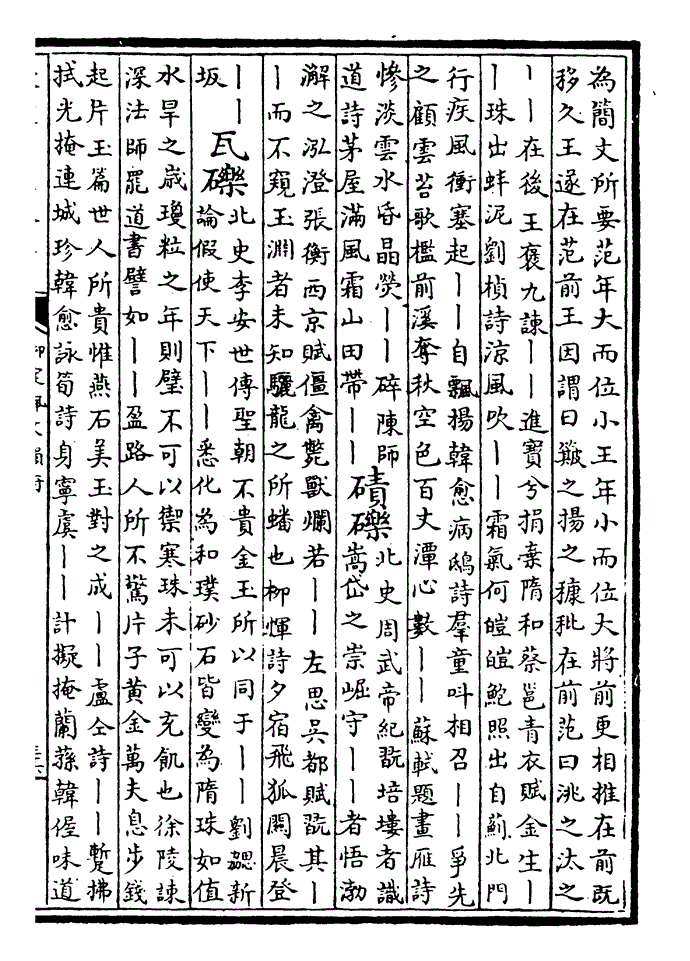 為簡文所要范年大而位小王年小而位大將前更相推在前既
移久王遂在范前王因謂曰簸之揚之糠秕在前范曰洮之汰之
丨丨在後王襃九諫丨丨進寶兮捐棄隋和蔡邕青衣賦金生丨
丨珠出蚌泥劉楨詩涼風吹丨丨霜氣何皚皚鮑照出自薊北門
行疾風衝塞起丨丨自飄揚韓愈病鴟詩羣童叫相召丨丨爭先
之顧雲苔歌檻前溪奪秋空色百丈潭心數丨丨蘇軾題畫雁詩
慘淡雲水昏晶熒丨丨碎陳師
道詩茅屋滿風霜山田帶丨丨
磧礫
北史周武帝紀翫培塿者識
嵩岱之崇崛守丨丨者悟渤
澥之泓澄張衡西京賦僵禽斃獸爛若丨丨左思吳都賦翫其丨
丨而不窺玉淵者未知驪龍之所蟠也柳惲詩夕宿飛狐關晨登
丨丨
坂
瓦礫
北史李安世傳聖朝不貴金玉所以同于丨丨劉勰新
論假使天下丨丨悉化為和璞砂石皆變為隋珠如值
水旱之歳瓊粒之年則璧不可以禦寒珠未可以充飢也徐陵諫
深法師罷道書譬如丨丨盈路人所不驚片子黄金萬夫息步錢
起片玉篇世人所貴惟燕石美玉對之成丨丨盧仝詩丨丨蹔拂
拭光掩連城珍韓愈詠筍詩身寧虞丨丨計擬掩蘭蓀韓偓味道